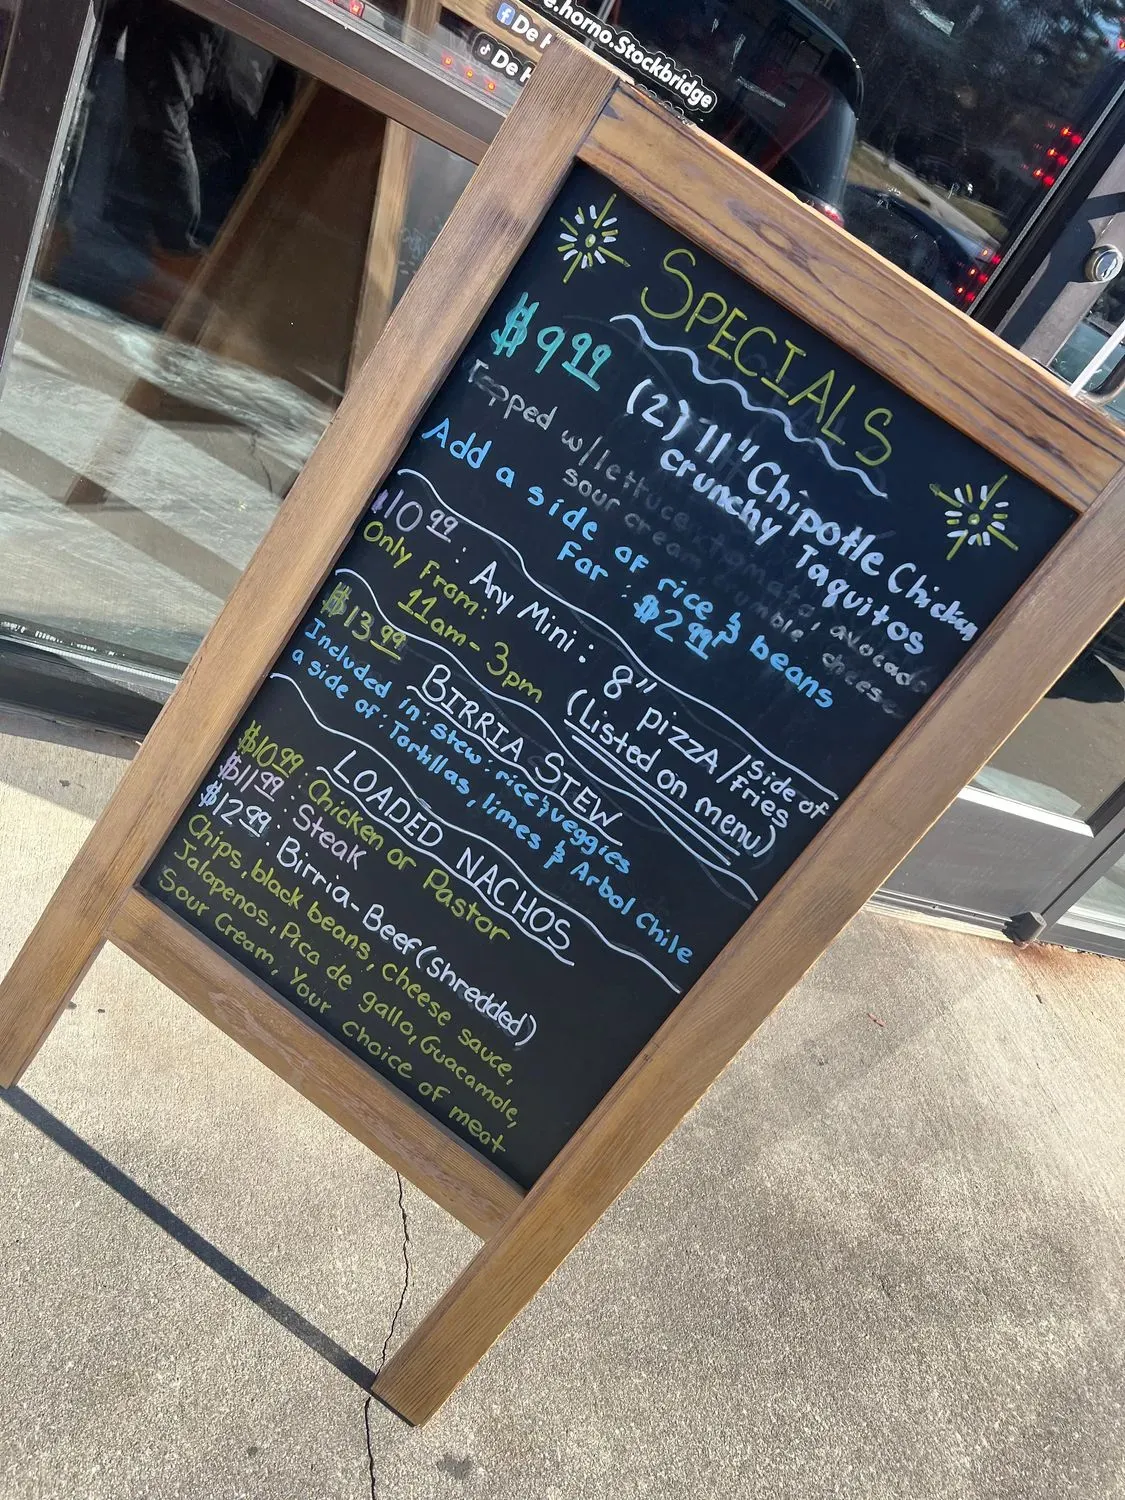 e.horno.Stockbridge
De H
De H
SPECIALS
$9.99 (2) 11" Chipotle Chicken
crunchy Taquitos
Topped w/lettuce, tomato, avocado
sour cream, crumble cheese
Add a side of rice & beans
For: $2.99
$10.99: Any Mini: 8" PIZZA/Side of Fries
Only From: (Listed on menu)
11am-3pm
$13.99 BIRRIA STEW
Included in: stew: rice & veggies
a side of: Tortillas, limes & Arbol Chile
LOADED NACHOS
$10.99: Chicken or Pastor
$11.99: Steak
$12.99: Birria-Beef (shredded)
Chips, black beans, cheese sauce,
Jalapenos, Pica de gallo, Guacamole,
Sour Cream, Your choice of meat